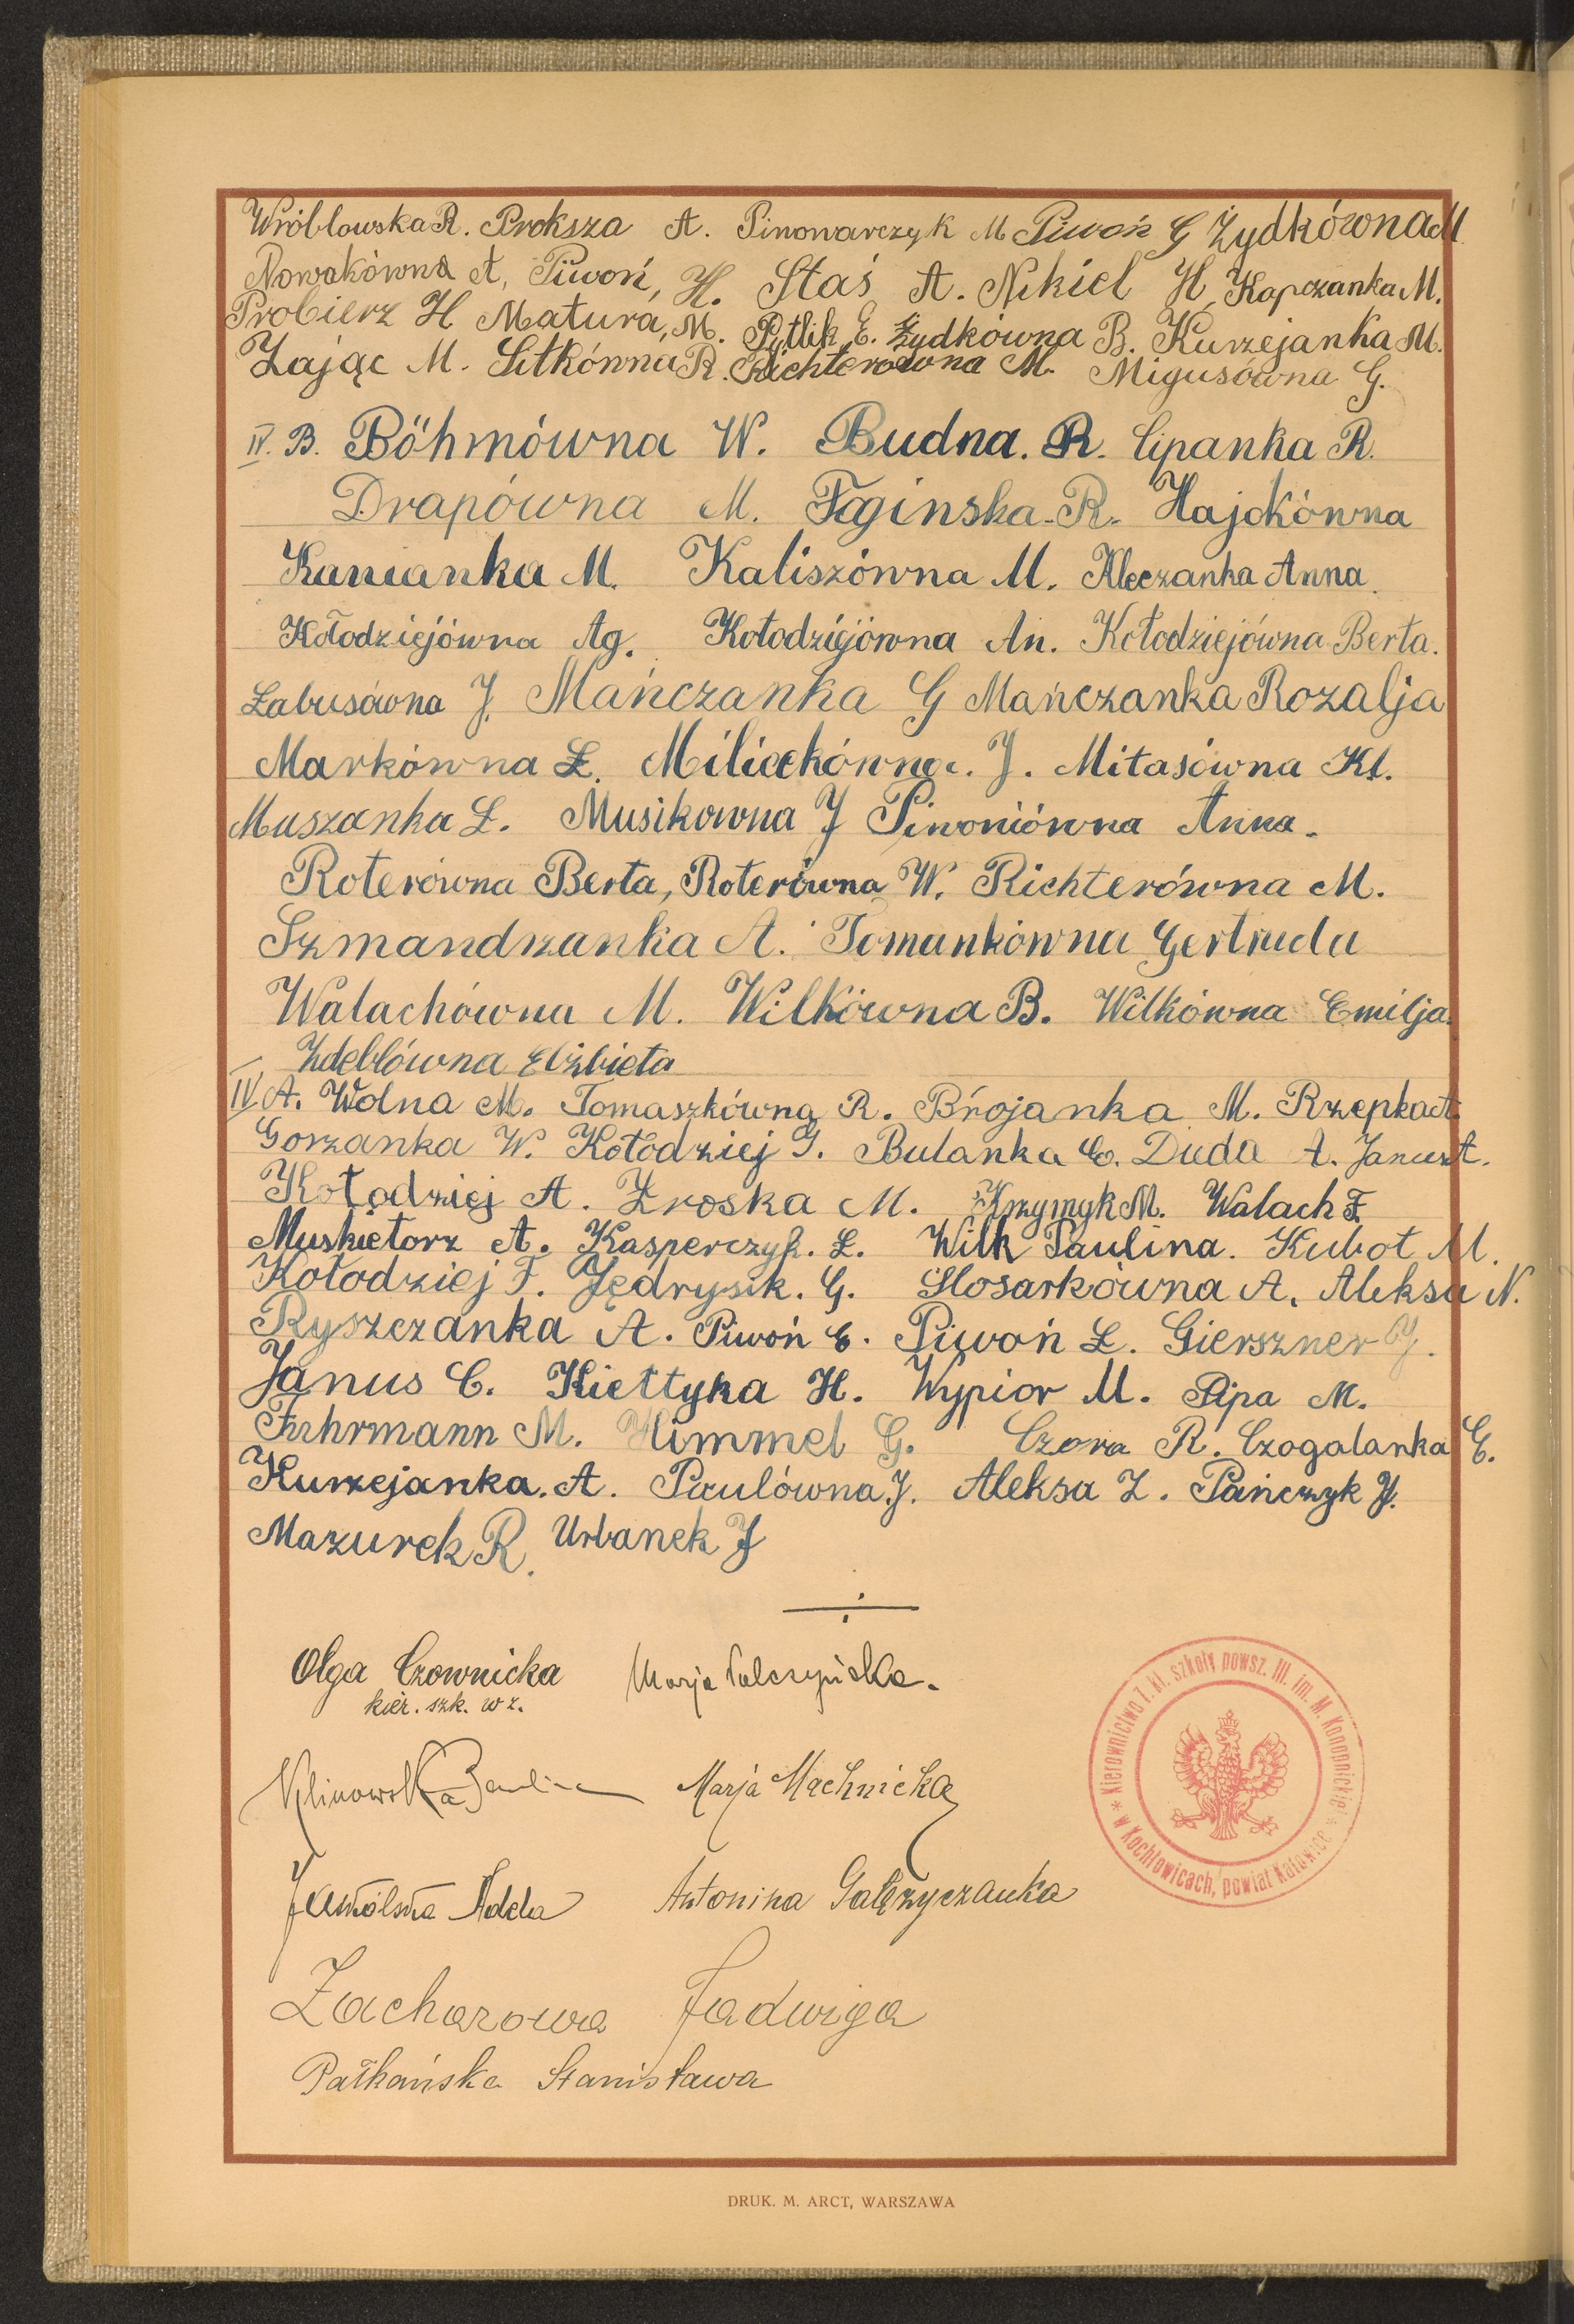 Wróblowska R. Proksza A. Pinowarczyk M Piwoń G Żydkówna M
Nowakówna A, Piwoń, H. Staś A. Nikiel H, Kapczanka M.
Probierz H Matura, M. Pytlik E. Żydkówna B. Kurzejanka M.
Zając M. Sitkówna R. Richterówna M. Migusówna G.
IV. B. Böhmówna W. Budna. R. Cipanka R.
Drapówna M. Faginska R. Hajokówna
Kanianka M. Kaliszówna M. Kleczanka Anna.
Kołodziejówna Ag. Kołodziejówna An. Kołodziejówna Berta.
Labusówna J. Mańczanka G Mańczanka Rozalja
Markówna Ł. Milicekówna. J. Mitasówna Kl.
Muszanka Ł. Musikowna J Piwoniówna Anna.
Roterówna Berta, Roterówna W. Richterówna M.
Szmandrzanka A. Tomankówna Gertruda
Walachówna M. Wilkówna B. Wilkówna Emilja.
Zdeblówna Elżbieta
IV A. Wolna M. Tomaszkówna R. Brojanka M. Rzepka A.
Gorzanka W. Kołodziej G. Bulanka E. Duda A. Janus A.
Kołodziej A. Zroska M. Krzymyk M. Walach F.
Muskietorz A. Kasperczyk. Ł. Wilk Paulina. Kubot M.
Kołodziej F. Jędrysik. G. Slosarkówna A. Aleksa N.
Ryszczanka A. Piwoń E. Piwoń Ł. Gierszner J.
Janus C. Kiełtyka H. Wypior M. Pipa M.
Fuhrmann M. Himmel G. Czora R. Czogalanka E.
Kurzejanka. A. Paulówna J. Aleksa Z. Pańczyk J.
Mazurek R. Urbanek J
Olga Czownicka Marja
kier. szk. w z.
Klinowska Marja Machnicka
Adela Antonina Gałęzyczanka
Zacharowa Jadwiga
Pałkańska Stanisława
* Kierownictwo 7. kl. szkoły powsz. III. im. M. Konopnickiej *
w Kochłowicach, powiat Katowice
DRUK. M. ARCT, WARSZAWA